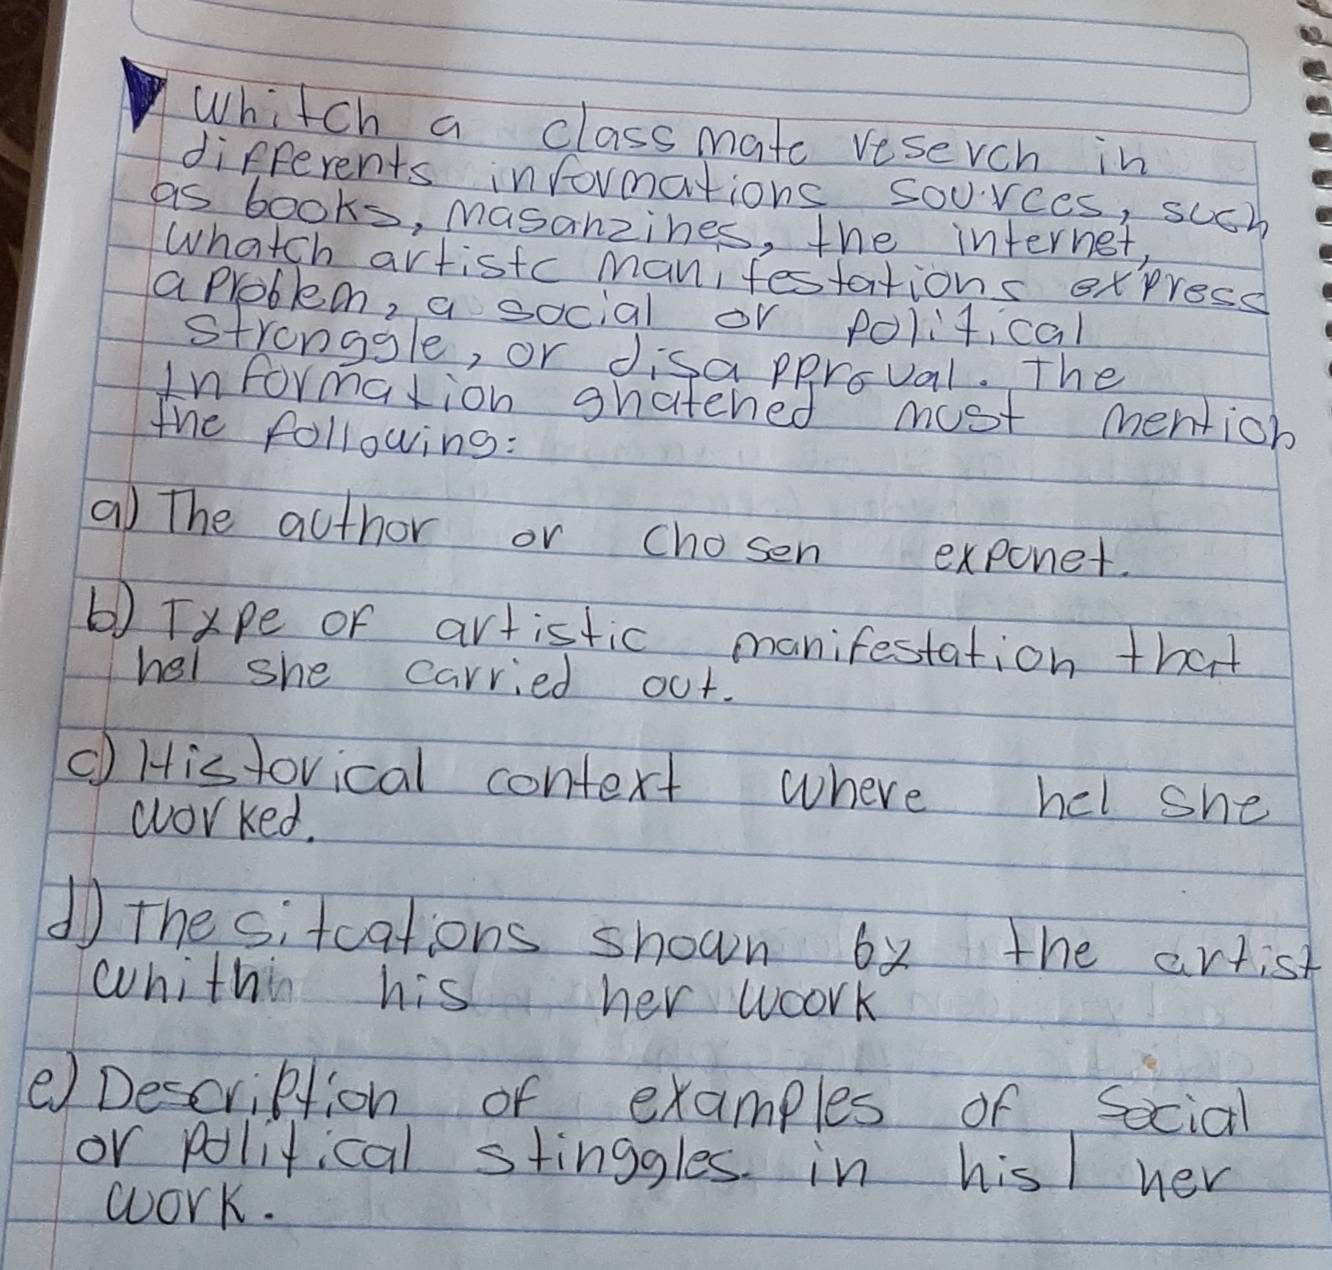 Whitch a classmate reserch in
differents informations sources, such
as books, masanzines, the internet,
whatch artistc manifestations express
a problem, a social or political
stronggle, or disapproval. The
Information ghatened must mention
the following:
a) The author or chosen exponet.
b) Type of artistic manifestation that
hel she carried out.
c) Historical context where hel she
worked.
d) The sitcations shown by the artist
whithin his her woork
e) Description of examples of social
or political stinggles in his/ her
work.